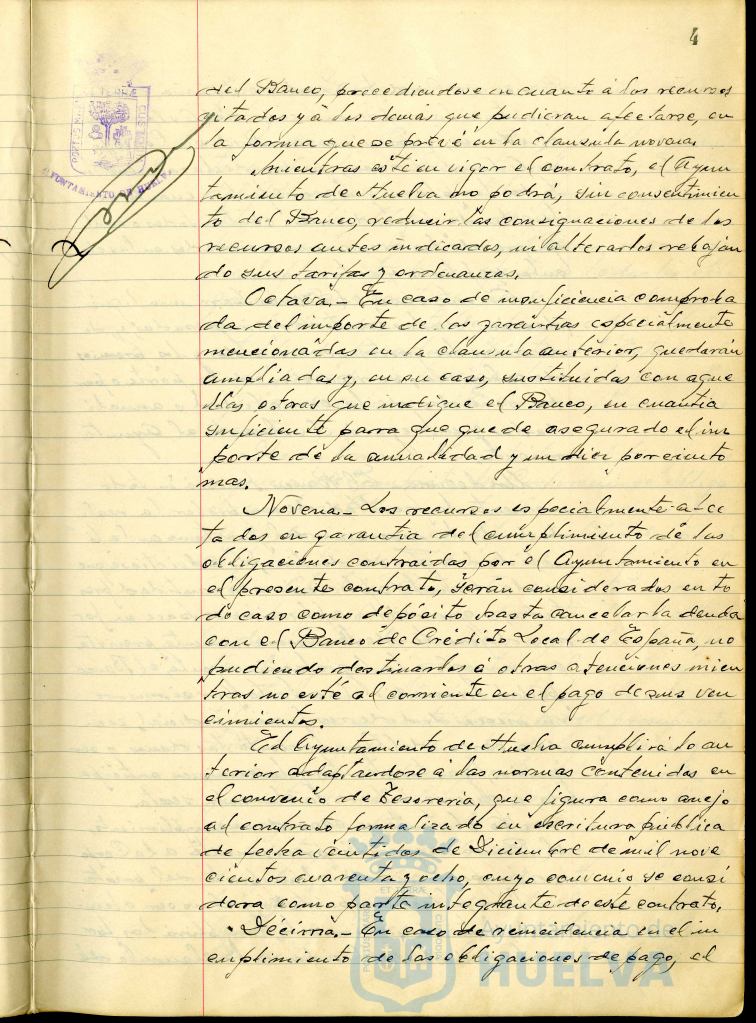 4
del Banco, procediendose en cuanto á los recursos
citados y á los demás que pudieran afectarse, en
la forma que se prevé en la clausula novena.
Mientras esté en vigor el contrato, el Ayun
tamiento de Huelva no podrá, sin consentimien
to del Banco, reducir las consignaciones de los
recursos antes indicados, ni alterarlos rebajan
do sus tarifas y ordenanzas.
Octava.- En caso de insuficiencia comproba
da del importe de las garantías especialmente
mencionadas en la clausula anterior, quedarán
ampliadas y, en su caso, sustituidas con aque
llas otras que indique el Banco, en cuantía
suficiente parra que quede asegurado el im
porte de la anualidad y un diez por ciento
mas.
Novena.- Los recursos especialmente afec
tados en garantía del cumplimiento de las
obligaciones contraidas por el Ayuntamiento en
el presente contrato, serán considerados en to
do caso como depósito hasta cancelar la deuda
con el Banco de Crédito Local de España, no
pudiendo destinarlos á otras atenciones mien
tras no esté al corriente en el pago de sus ven
cimientos.
El Ayuntamiento de Huelva cumplirá lo an
terior adaptandose á las normas contenidas en
el convenio de Tesorería, que figura como anejo
al contrato formalizado en escritura pública
de fecha veintidos de Diciembre de mil nove
cientos cuarenta y ocho, cuyo convenio se consi
dera como parte integrante de este contrato.
Décima.- En caso de reincidencia en el in
cumplimiento de las obligaciones de pago, el
AYUNTAMIENTO DE HUELVA
Ayuntamiento de
HUELVA